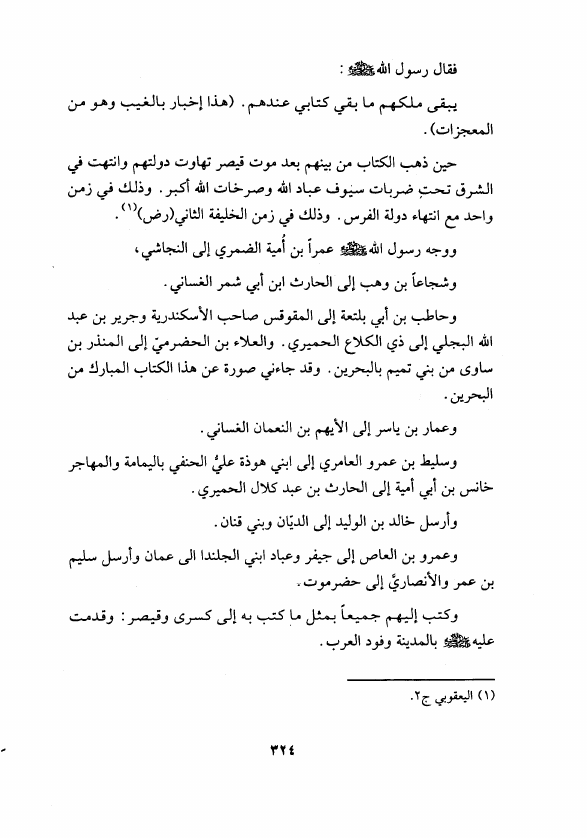 فقال رسول الله ﷺ :
يبقى ملكهم ما بقي كتابي عندهم. (هذا إخبار بالغيب وهو من
المعجزات).
حين ذهب الكتاب من بينهم بعد موت قيصر تهاوت دولتهم وانتهت في
الشرق تحت ضربات سيوف عباد الله وصرخات الله أكبر. وذلك في زمن
واحد مع انتهاء دولة الفرس. وذلك في زمن الخليفة الثاني(رض)(١).
ووجه رسول الله ﷺ عمراً بن أُمية الضمري إلى النجاشي،
وشجاعاً بن وهب إلى الحارث ابن أبي شمر الغساني.
وحاطب بن أبي بلتعة إلى المقوقس صاحب الأسكندرية وجرير بن عبد
الله البجلي إلى ذي الكلاع الحميري. والعلاء بن الحضرميّ إلى المنذر بن
ساوى من بني تميم بالبحرين. وقد جاءني صورة عن هذا الكتاب المبارك من
البحرين.
وعمار بن ياسر إلى الأيهم بن النعمان الغساني.
وسليط بن عمرو العامري إلى ابني هوذة عليُّ الحنفي باليمامة والمهاجر
خانس بن أبي أمية إلى الحارث بن عبد كلال الحميري.
وأرسل خالد بن الوليد إلى الديّان وبني قنان.
وعمرو بن العاص إلى جيفر وعباد ابني الجلندا الى عمان وأرسل سليم
بن عمر والأنصاريَّ إلى حضرموت.
وكتب إليهم جميعاً بمثل ما كتب به إلى كسرى وقيصر: وقدمت
عليه ﷺ بالمدينة وفود العرب.
(١) اليعقوبي ج٢.
٣٢٤